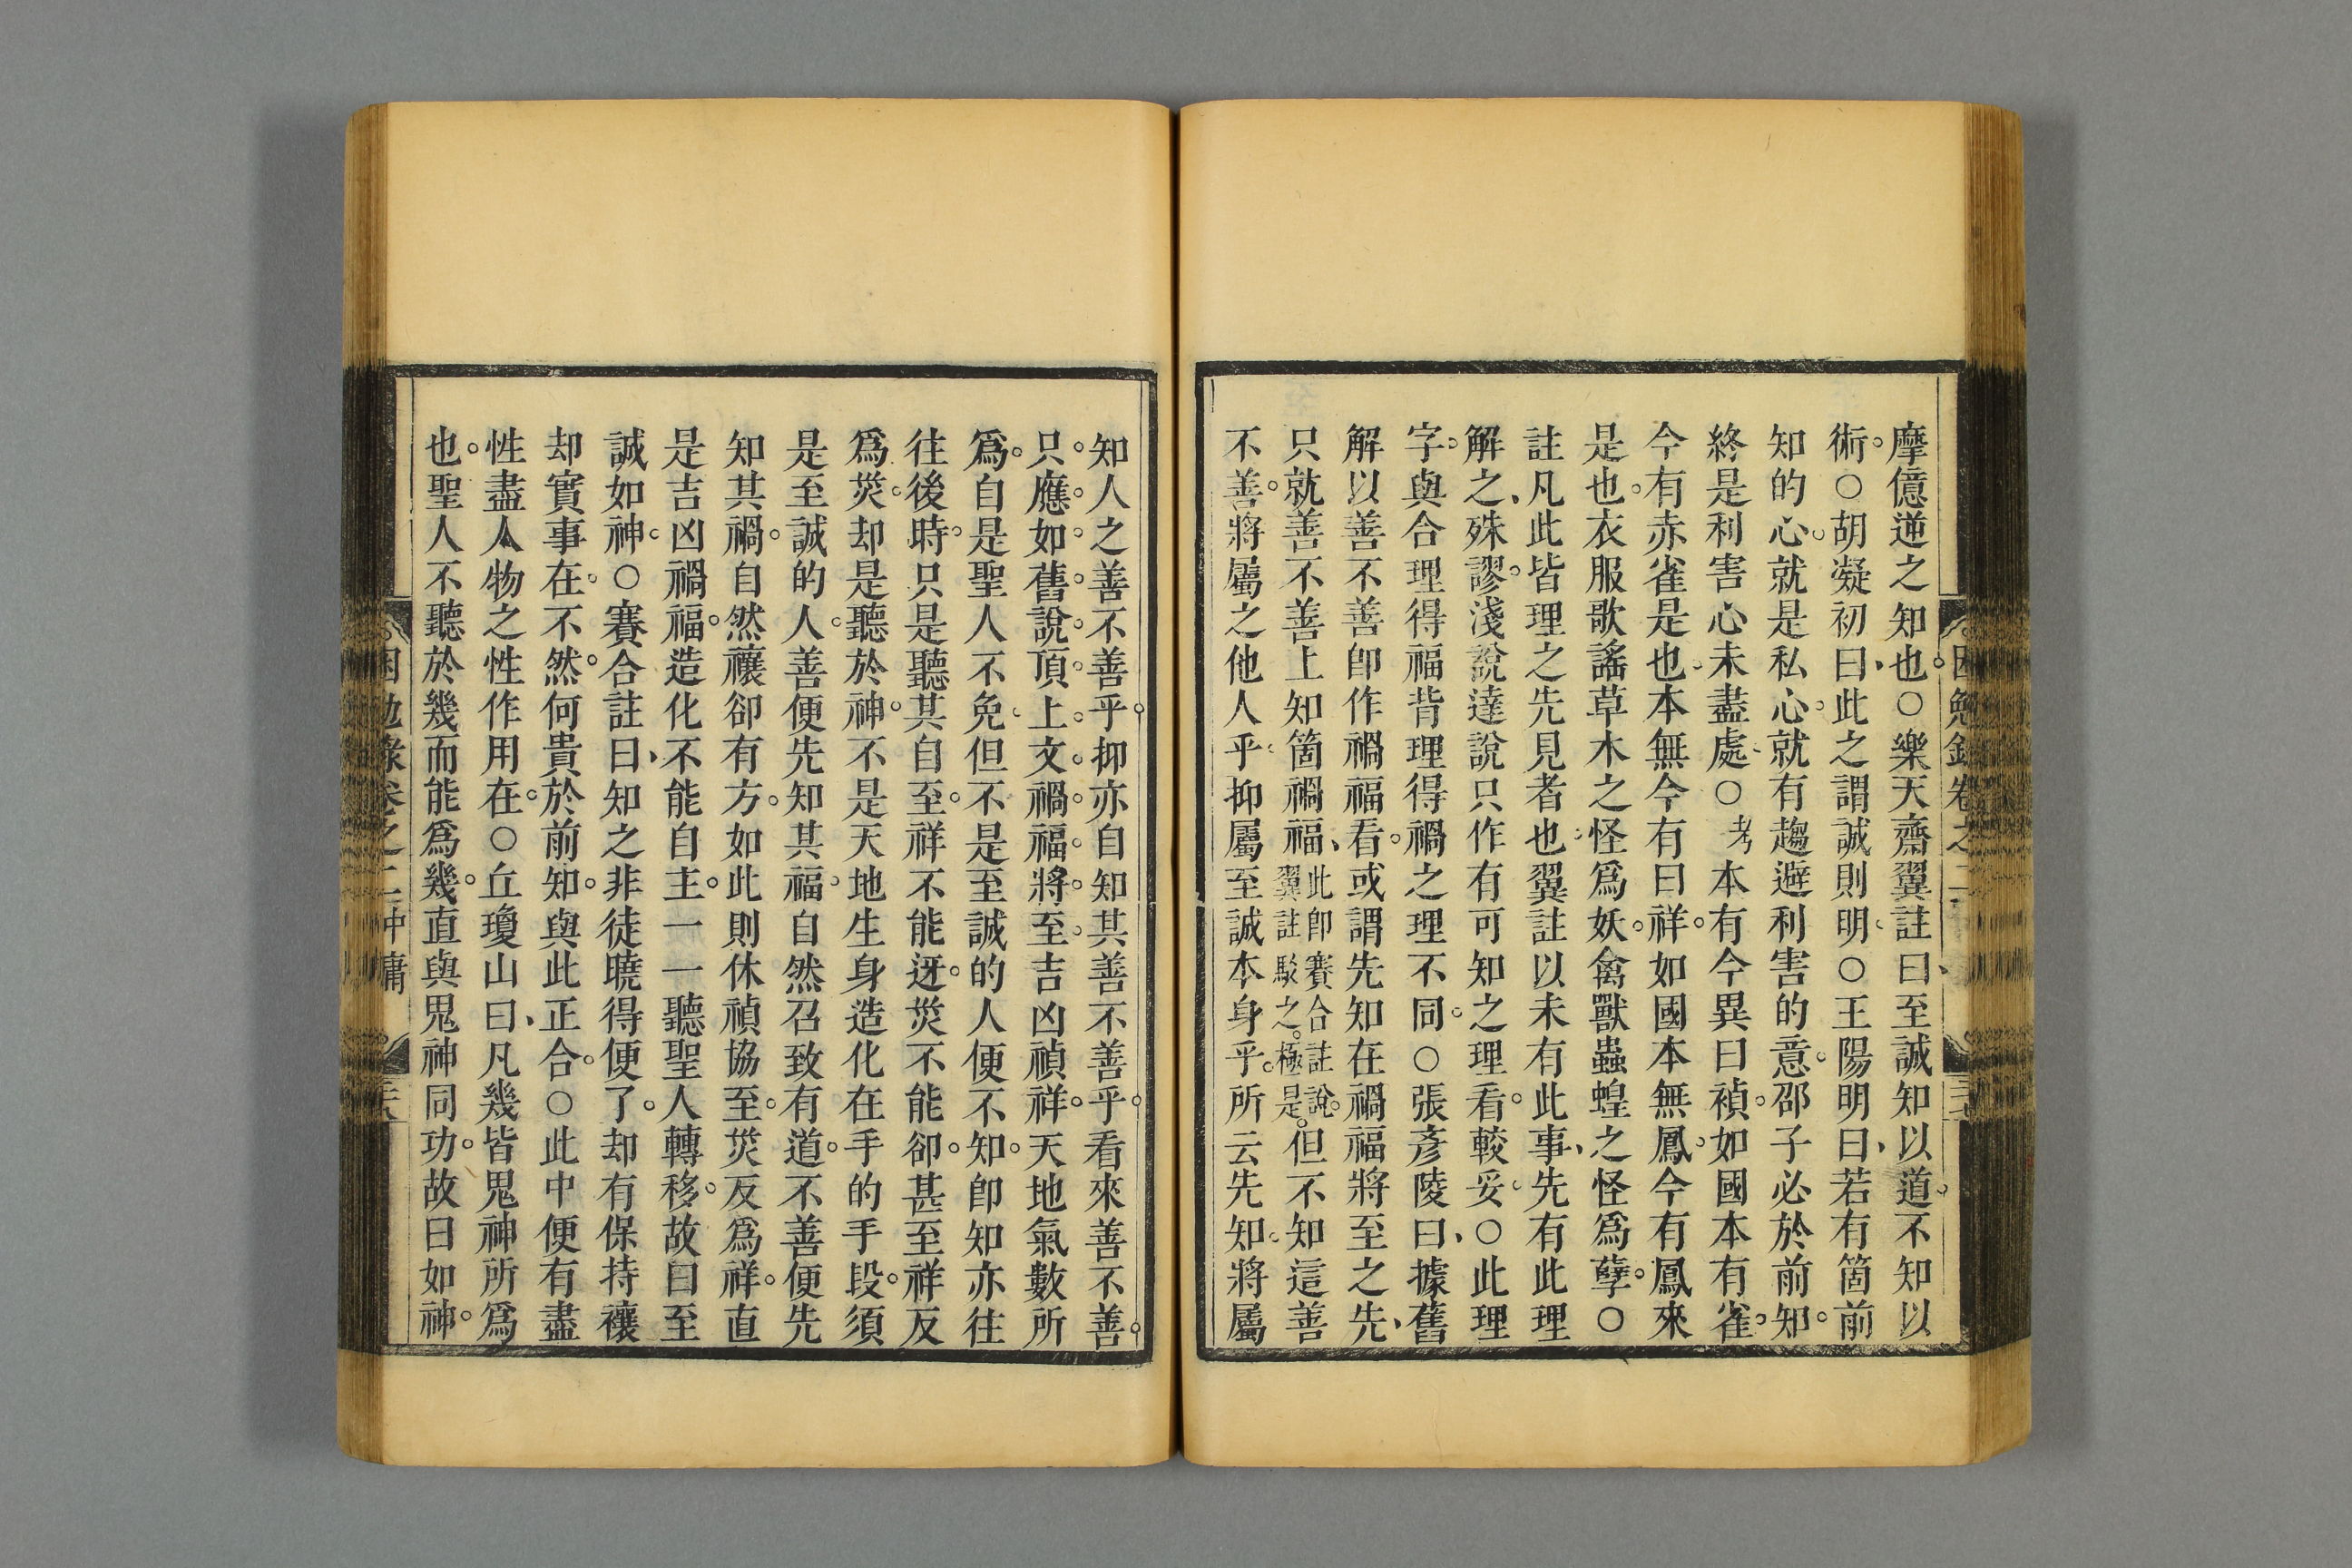 摩億逆之知也。○樂天齋翼註曰、至誠知以道。不知以
術。○胡凝初曰、此之謂誠則明。○王陽明曰、若有箇前
知的心。就是私心。就有趨避利害的意。邵子必於前知。
終是利害心未盡處。○考本有今異曰禎。如國本有雀。
今有赤雀是也。本無今有曰祥。如國本無鳳。今有鳳來
是也。衣服歌謠草木之怪爲妖。禽獸蟲蝗之怪爲孽。○
註凡此皆理之先見者也。翼註以未有此事、先有此理
解之、殊謬。淺說達說只作有可知之理看。較妥。○此理
字。與合理得福背理得禍之理不同。○張彥陵曰、據舊
解以善不善卽作禍福看。或謂先知在禍福將至之先、
只就善不善上知箇禍福、此卽賽合註說。翼註駁之。極是。但不知這善
不善。將屬之他人乎。抑屬至誠本身乎。所云先知。將屬
知人之善不善乎。抑亦自知其善不善乎。看來善不善。
只。應。如。舊。說。頂。上。文。禍。福。將。至。吉凶禎祥。天地氣數所
爲。自是聖人不免。但不是至誠的人便不知。卽知亦往
往後時。只是聽其自至。祥不能迓。災不能卻。甚至祥反
爲災。却是聽於神。不是天地生身造化在手的手段。須
是至誠的人。善便先知其福。自然召致有道。不善便先
知其禍。自然禳卻有方。如此則休禎協至。災反爲祥。直
是吉凶禍福。造化不能自主。一一聽聖人轉移。故曰至
誠如神。○賽合註曰、知之非徒曉得便了。却有保持禳
却實事在。不然。何貴於前知。與此正合。○此中便有盡
性盡人物之性作用在。○丘瓊山曰、凡幾皆鬼神所爲
也。聖人不聽於幾而能爲幾。直與鬼神同功。故曰如神。
困勉錄卷之二
困勉錄卷之二 中庸